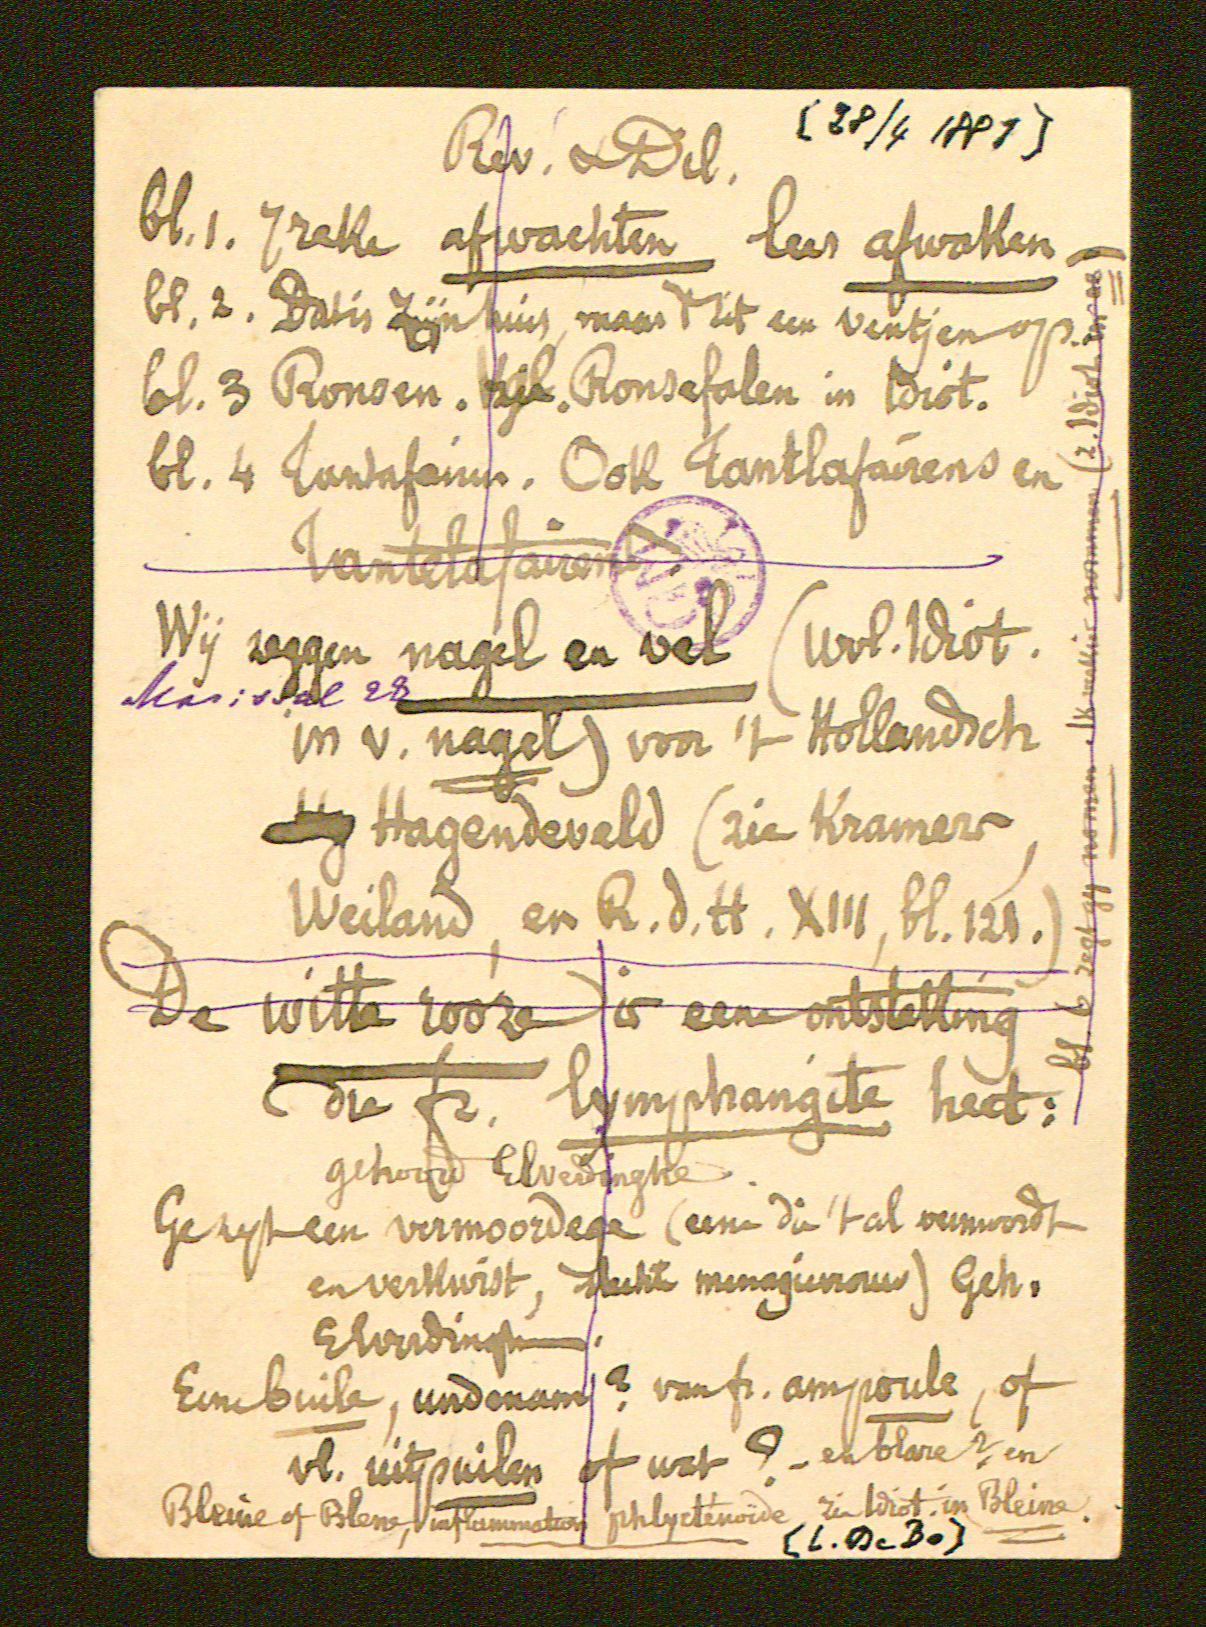 [28/4 1881]
Rev. & Dil.
bl. 1. Zrake afwachten lees afwaken
bl. 2. Dat is zijn huis, maar 't zit een ventjen op.
bl. 3 Ronsen. Vgl. Ronsefalen in Idiot.
bl. 4 Tantafairen. Ook Tantlafairens en
Tantelafairens.
Wij zeggen nagel en vel (wvl. Idiot.
in v. nagel) voor 't Hollandsch
Hagendeveld (zie Kramers,
Weiland, en R. d. H. XIII, bl. 121.)
De witte rooze is eene ontstelling
die fr. lymphangite heet:
gehoord Elverdinghe.
Ge zyt een vermoordege (eene die 't al vermoordt
en verkwist, slechte menagievrouw) Geh.
Elverdinghe.
Een buile, van fr. ampoule, of
vl. uitpuilen of wat? - en blare? en
Bleine of Blene, inflammation phlycténoïde zie Idiot. in Bleine.
[L. De Bo]
bl. 6 zegt gy nomen. Ik nommen (z. Idiot. in